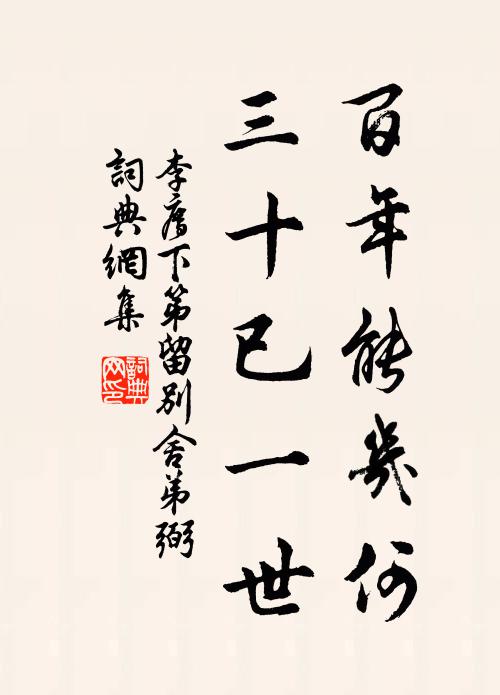 百年能幾何
三十已一世
李廌下第留別舍弟弼
詞典網集
詞典
网印